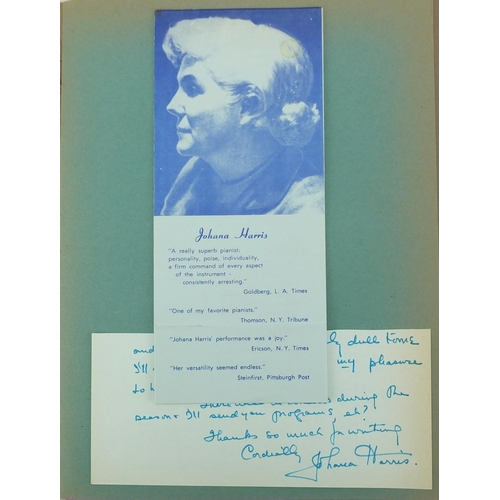 Johana Harris
"A really superb pianist;
personality, poise, individuality,
a firm command of every aspect
of the instrument -
consistently arresting."
Goldberg, L. A. Times
"One of my favorite pianists."
Thomson, N. Y. Tribune
"Johana Harris' performance was a joy."
Ericson, N. Y. Times
"Her versatility seemed endless."
Steinfirst, Pittsburgh Post
dull tome
I'll my pleasure
to
during the
season & I'll send you programs, eh?
Thanks so much for writing
Cordially Johana Harris.